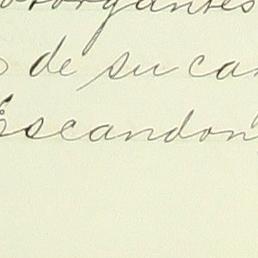 otorgantes
de su ca
Escandon